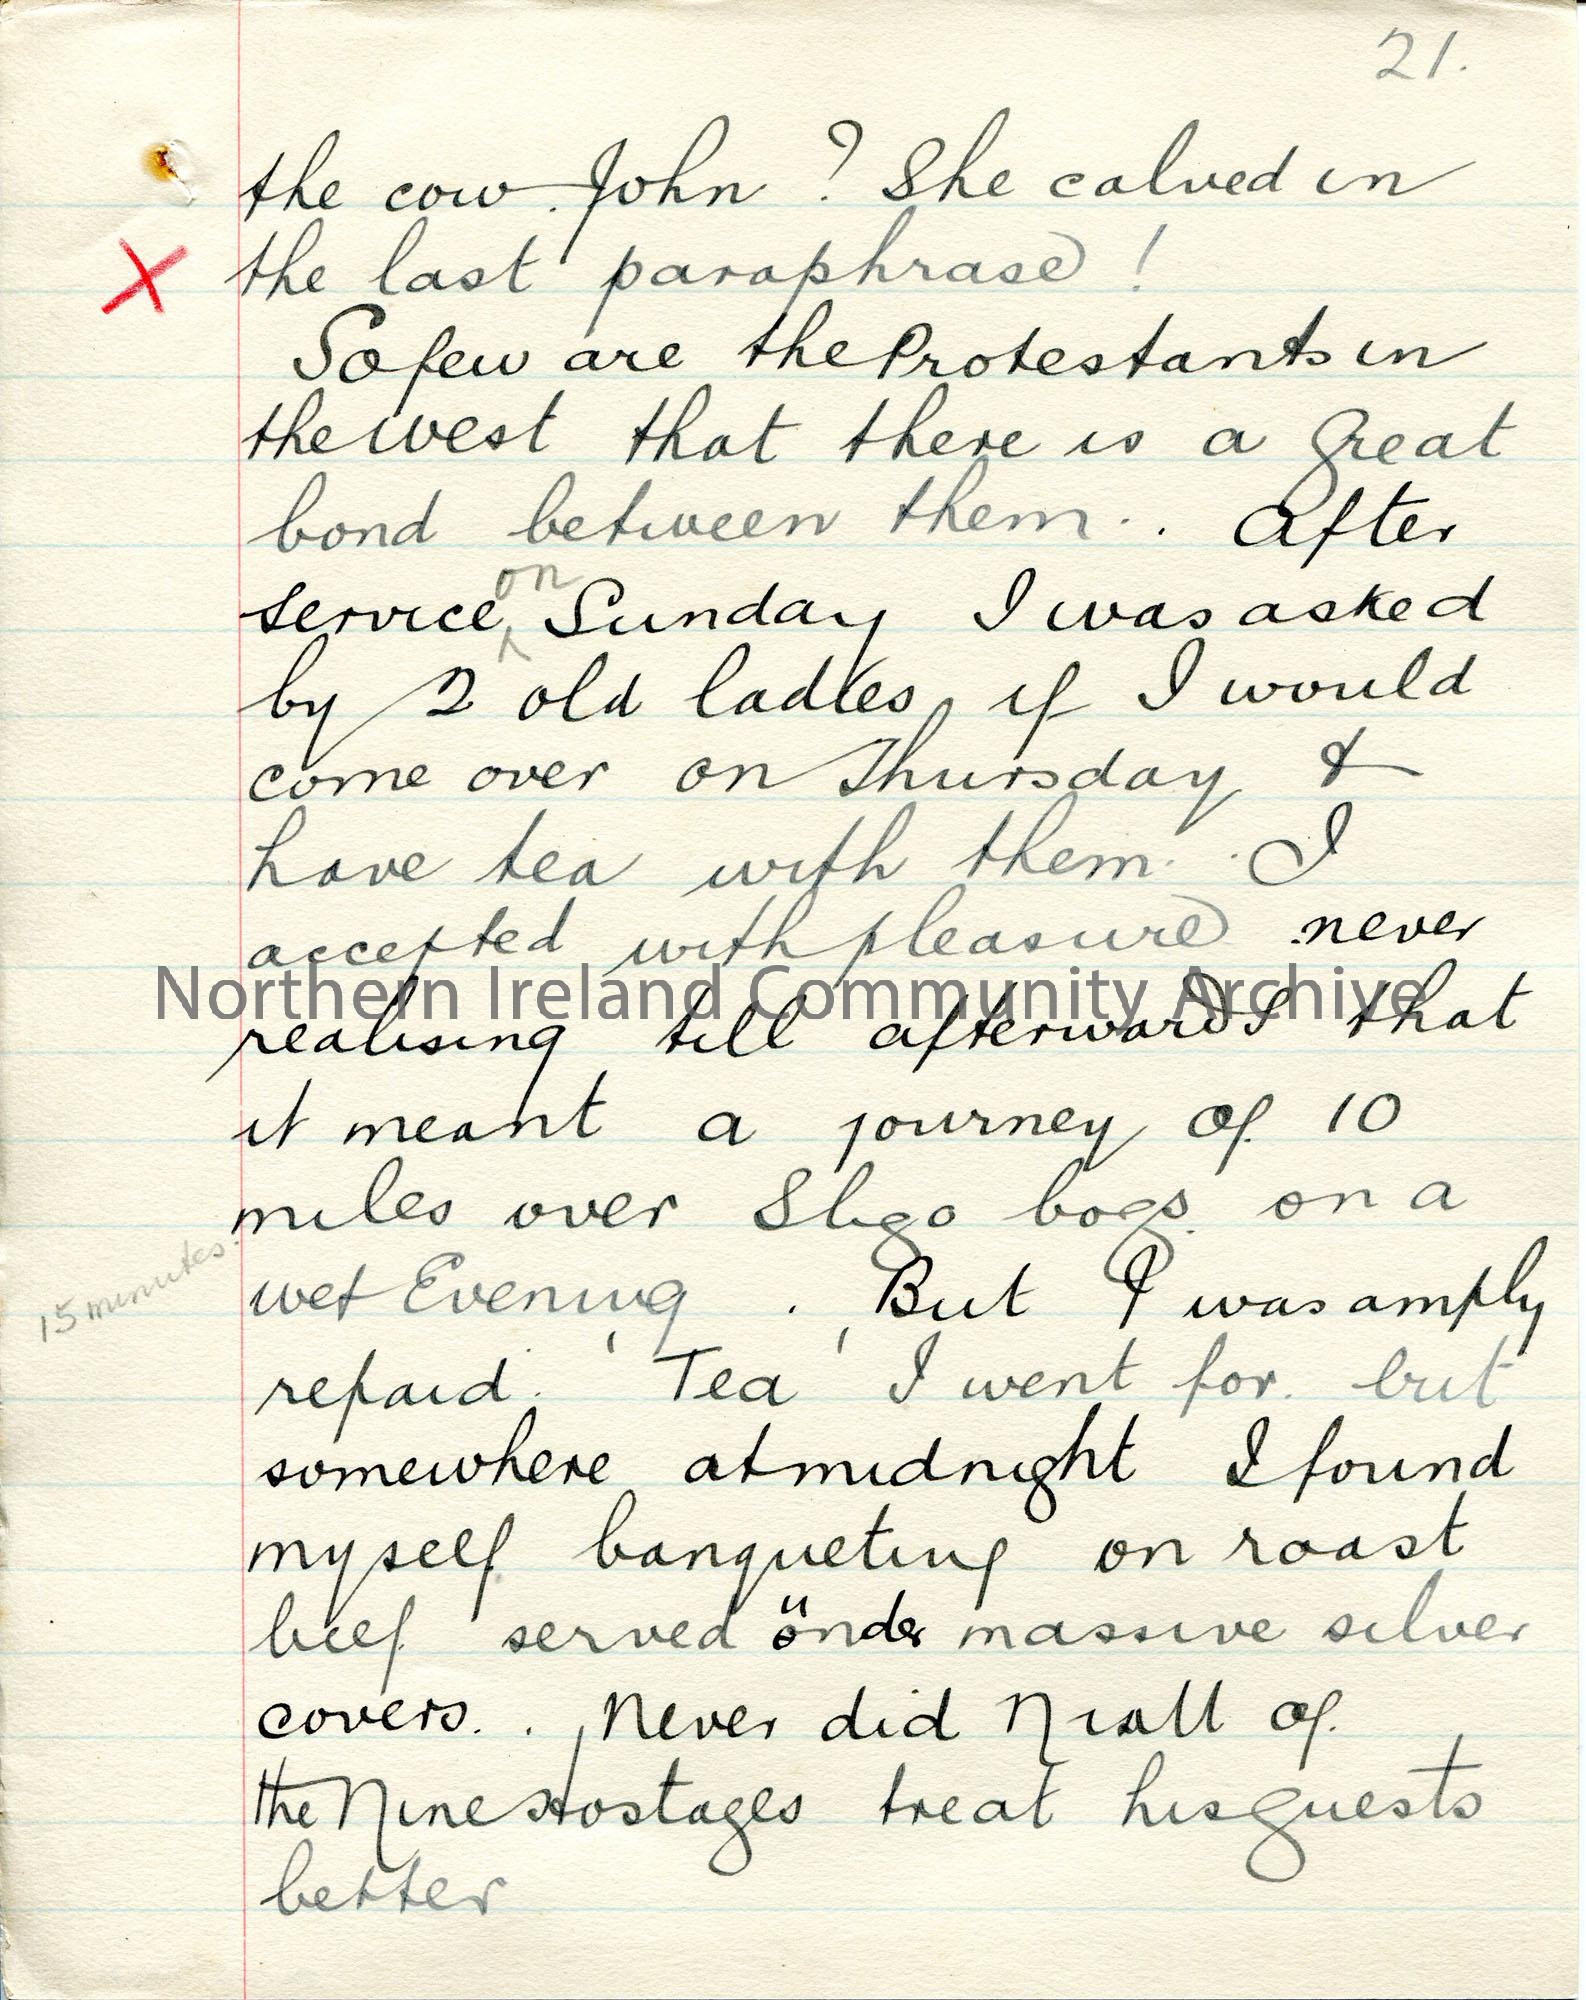 21.
the cow John? She calved in
the last paraphrase!
So few are the Protestants in
the west that there is a great
bond between them. After
service on Sunday I was asked
by 2 old ladies if I would
come over on Thursday &
have tea with them. I
accepted with pleasure never
Northern Ireland Community Archive
realising till afterwards that
it meant a journey of 10
miles over Sligo bogs on a
15 minutes.
wet Evening. But I was amply
repaid. 'Tea' I went for. but
somewhere at midnight I found
myself banqueting on roast
beef served under massive silver
covers. Never did Niall of
the Nine Hostages treat his guests
better